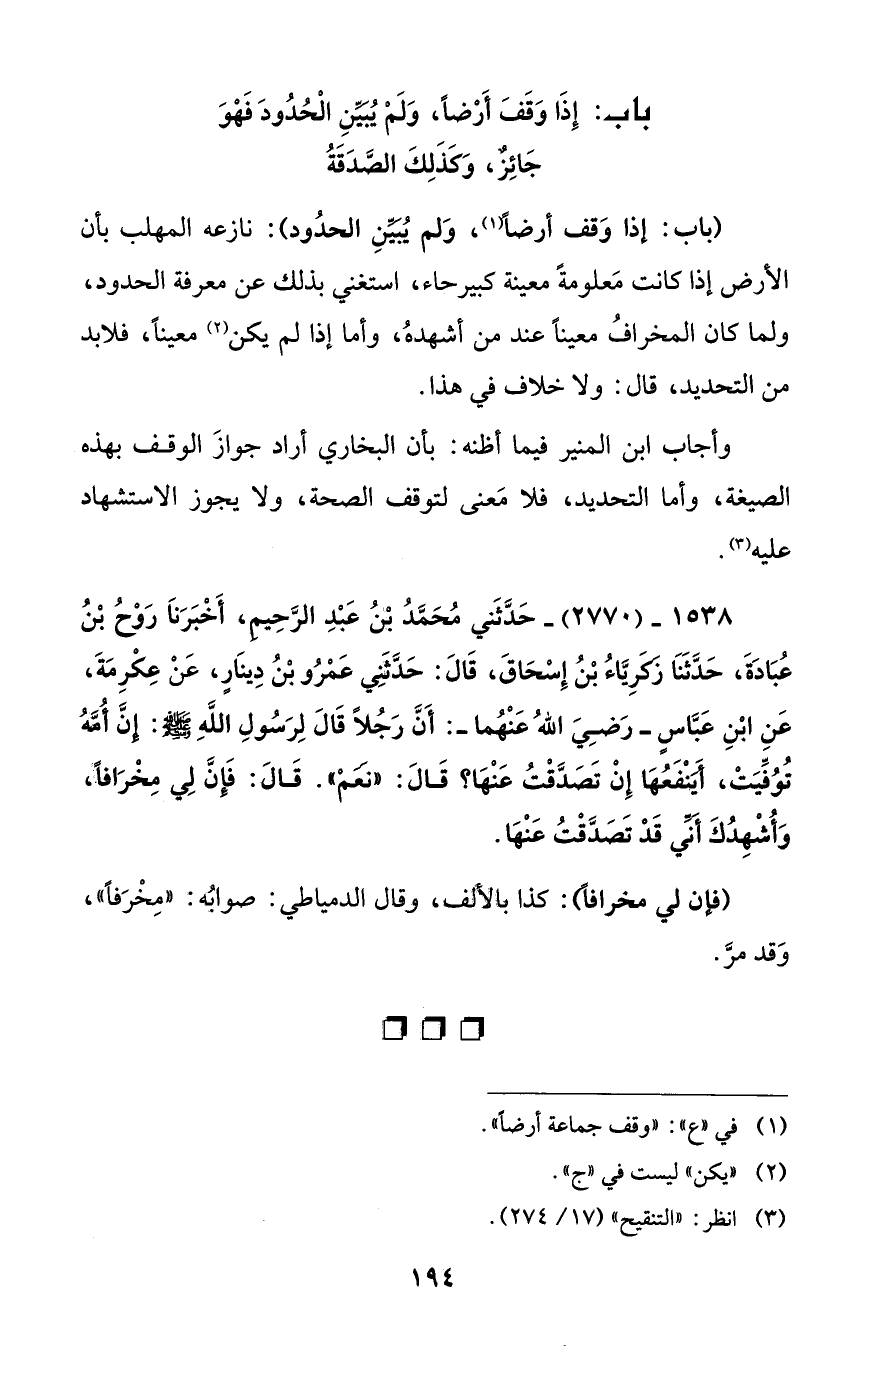 باب: إِذَا وَقَفَ أَرْضاً، وَلَمْ يُبَيِّنِ الْحُدُودَ فَهْوَ
جَائِزٌ، وَكَذَلِكَ الصَّدَقَةُ
(باب: إذا وَقف أرضاً(١)، وَلم يُبَيِّنِ الحدُود): نازعه المهلب بأن
الأرض إذا كانت مَعلومةً معينة كبيرحاء، استغني بذلك عن معرفة الحدود،
ولما كان المخرافُ معيناً عند من أشهدهُ، وأما إذا لم يكن(٢) معيناً، فلابد
من التحديد، قال: ولا خلاف في هذا.
وأجاب ابن المنير فيما أظنه: بأن البخاري أراد جوازَ الوقف بهذه
الصيغة، وأما التحديد، فلا مَعنى لتوقف الصحة، ولا يجوز الاستشهاد
عليه(٣).
١٥٣٨ - (٢٧٧٠) - حَدَّثَنِي مُحَمَّدُ بْنُ عَبْدِ الرَّحِيمِ، أَخْبَرَنَا رَوْحُ بْنُ
عُبَادَةَ، حَدَّثَنَا زَكَرِيَّاءُ بْنُ إِسْحَاقَ، قَالَ: حَدَّثَنِي عَمْرُو بْنُ دِينَارٍ، عَنْ عِكْرِمَةَ،
عَنِ ابْنِ عَبَّاسٍ - رَضِيَ اللهُ عَنْهُما -: أَنَّ رَجُلاً قَالَ لِرَسُولِ اللَّهِ ﷺ: إِنَّ أُمَّهُ
تُوُفِّيَتْ، أَيَنْفَعُهَا إِنْ تَصَدَّقْتُ عَنْهَا؟ قَالَ: «نَعَمْ». قَالَ: فَإِنَّ لِي مِخْرَافاً،
وَأُشْهِدُكَ أَنِّي قَدْ تَصَدَّقْتُ عَنْهَا.
(فإن لي مخرافاً): كذا بالألف، وقال الدمياطي: صوابُه: «مِخْرَفاً»،
وَقد مرَّ.
(١) في «ع»: «وقف جماعة أرضاً».
(٢) «يكن» ليست في «ج».
(٣) انظر: «التنقيح» (١٧/ ٢٧٤).
١٩٤